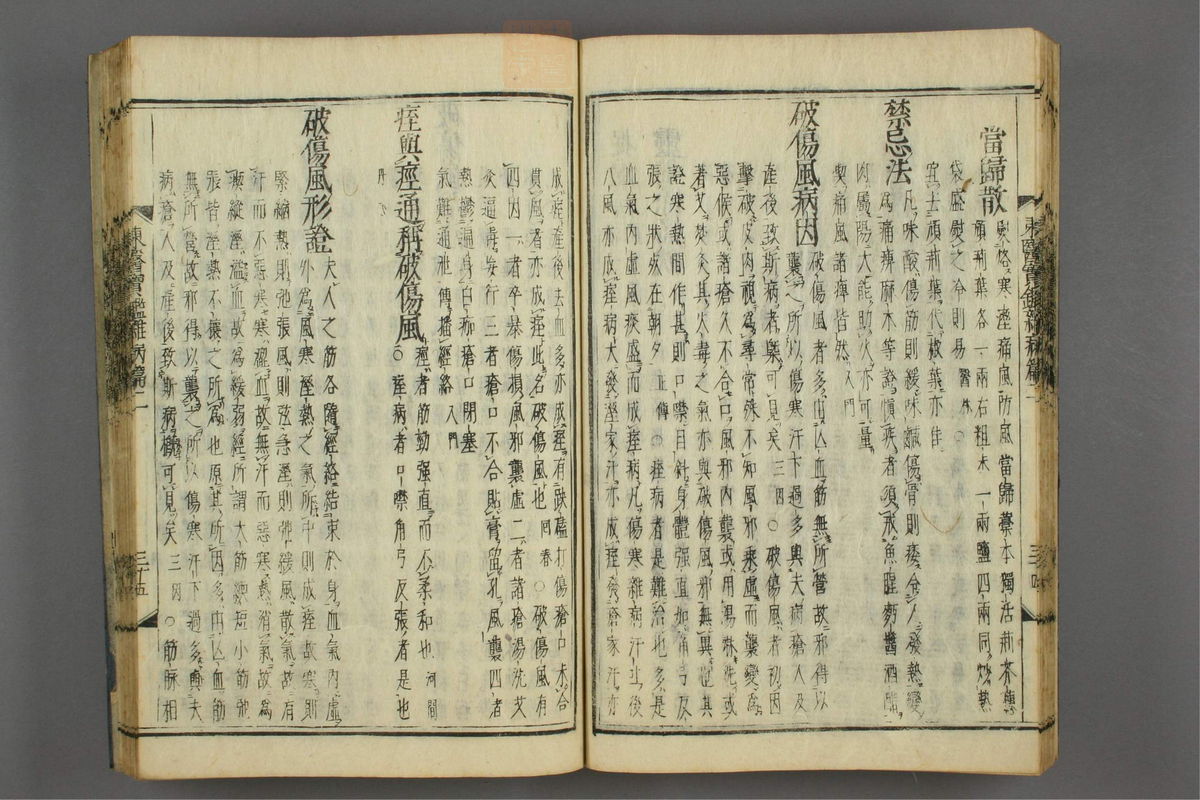 當歸散
治風寒濕痛風防風當歸藁本獨活荊芥穗
頑荊葉各一兩右粗末一兩鹽四兩同炒熱
袋盛熨之冷則易醫林○
宜去頑荊葉代椒葉亦佳
禁忌法
凡味酸傷筋則緩味鹹傷骨則痿令人發熱變
爲痛痺麻木等證愼疾者須戒魚腥麪醬酒醋
肉屬陽大能助火亦可量
喫痛風諸痺皆然入門
破傷風病因
破傷風者多由亡血筋無所營故邪得以
襲之所以傷寒汗下過多與夫病瘡人及
產後致斯病者槩可見矣三因○破傷風者初因
擊破皮肉視爲尋常殊不知風邪乘虛而襲變爲
惡候或諸瘡久不合口風邪內襲或用湯淋洗或
著艾焚灸其火毒之氣亦與破傷風邪無異其
證寒熱間作甚則口噤目斜身體强直如角弓反
張之狀死在朝夕正傳○痓病者是難治也多是
血氣內虛風痰盛而成痓病凡傷寒雜病汗吐後
入風亦成痓病大發濕家汗亦成痓發瘡家汗亦
成痓產後去血多亦成痓有跌磕打傷瘡口未合
貫風者亦成痓此名破傷風也回春○破傷風有
四因一者卒暴傷損風邪襲虛二者諸瘡湯洗艾
灸逼毒妄行三者瘡口不合貼膏留孔風襲四者
熱鬱遍身白痂瘡口閉塞
氣難通泄傳播經絡入門
痓與痙通稱破傷風
痙者筋勁强直而不柔和也河間
○痓病者口噤角弓反張者是也
丹心
破傷風形證
夫人之筋各隨經絡結束於身血氣內虛
外爲風寒濕熱之氣所中則成痓故寒則
緊縮熱則弛張風則弦急濕則弛緩風散氣故有
汗而不惡寒寒濇血故無汗而惡寒熱消氣故爲
瘈縱濕溢血故爲緩弱經所謂大筋緛短小筋弛
張皆濕熱不攘之所爲也原其所因多由亡血筋
無所營故邪得以襲之所以傷寒汗下過多與夫
病瘡人及產後致斯病槪可見矣三因○筋脉相
東醫寶鑑雜病篇二
三十五